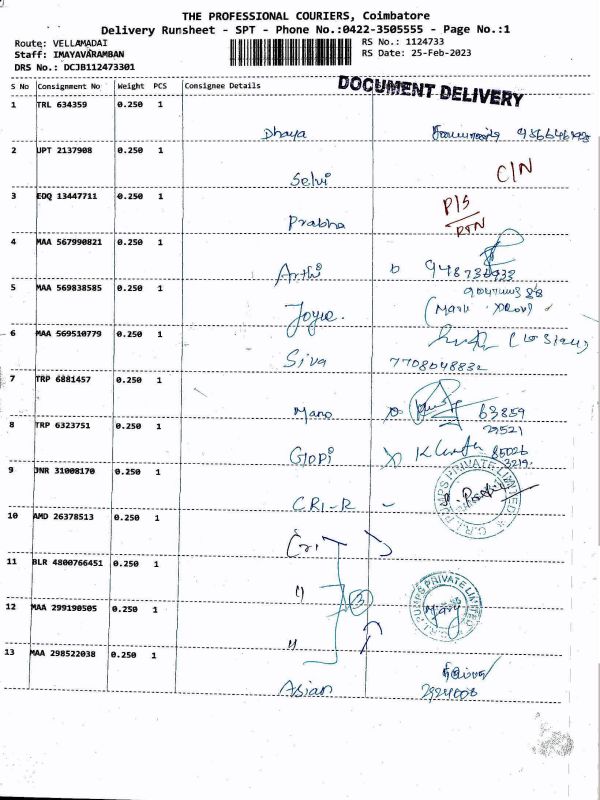 THE PROFESSIONAL COURIERS, Coimbatore
Delivery Runsheet - SPT - Phone No.:0422-3505555 - Page No.:1
Route: VELLAMADAI
RS No.: 1124733
Staff: IMAYAVARAMBAN
RS Date: 25-Feb-2023
DRS No.: DCJB112473301
S No Consignment No Weight PCS Consignee Details
DOCUMENT DELIVERY
1 TRL 634359 0.250 1
Dhaya
2 UPT 2137908 0.250 1
Selvi C/N
3 EDQ 13447711 0.250 1
Prabha P/S
RTN
4 MAA 567990821 0.250 1
Arthi
5 MAA 569838585 0.250 1
Joyce.
6 MAA 569510779 0.250 1
Siva 7708048832
7 TRP 6881457 0.250 1
Mano 63859
29521
8 TRP 6323751 0.250 1
Gopi 85026
3219.
9 JNR 31008170 0.250 1
CRI-R -
C.R.I. PUMPS PRIVATE LIMITED
10 AMD 26378513 0.250 1
Cri
11 BLR 4800766451 0.250 1
" 3
C.R.I. PUMPS PRIVATE LIMITED
Mary
12 MAA 299190505 0.250 1
"
13 MAA 298522038 0.250 1
Asian